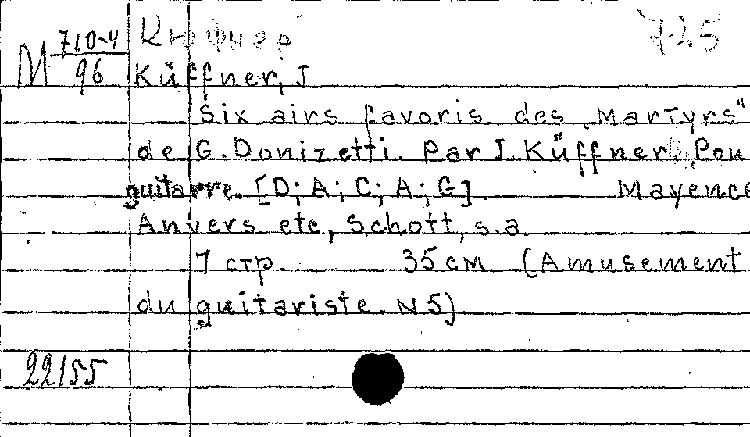 М 710-4 Кюфнер 725
96 Küffner, J
Six airs favoris des „Martyrs"
de G. Donizetti. Par J. Küffner. Pou
guitarre. [D; A; C; A; G] Mayence
Anvers etc, Schott, s.a.
7 стр. 35 см (Amusement
du guitariste. N 5)
22155